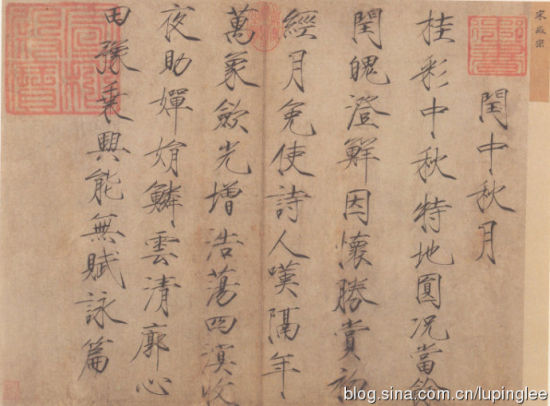 宋徽宗
御書
閏中秋月
桂彩中秋特地圓况當餘
閏魄澄鮮因懷勝賞初
經月免使詩人嘆隔年
萬象斂光增浩蕩四溟收
夜助嬋娟鱗雲清廓心
田豫乘興能無賦詠篇
blog.sina.com.cn/lupinglee